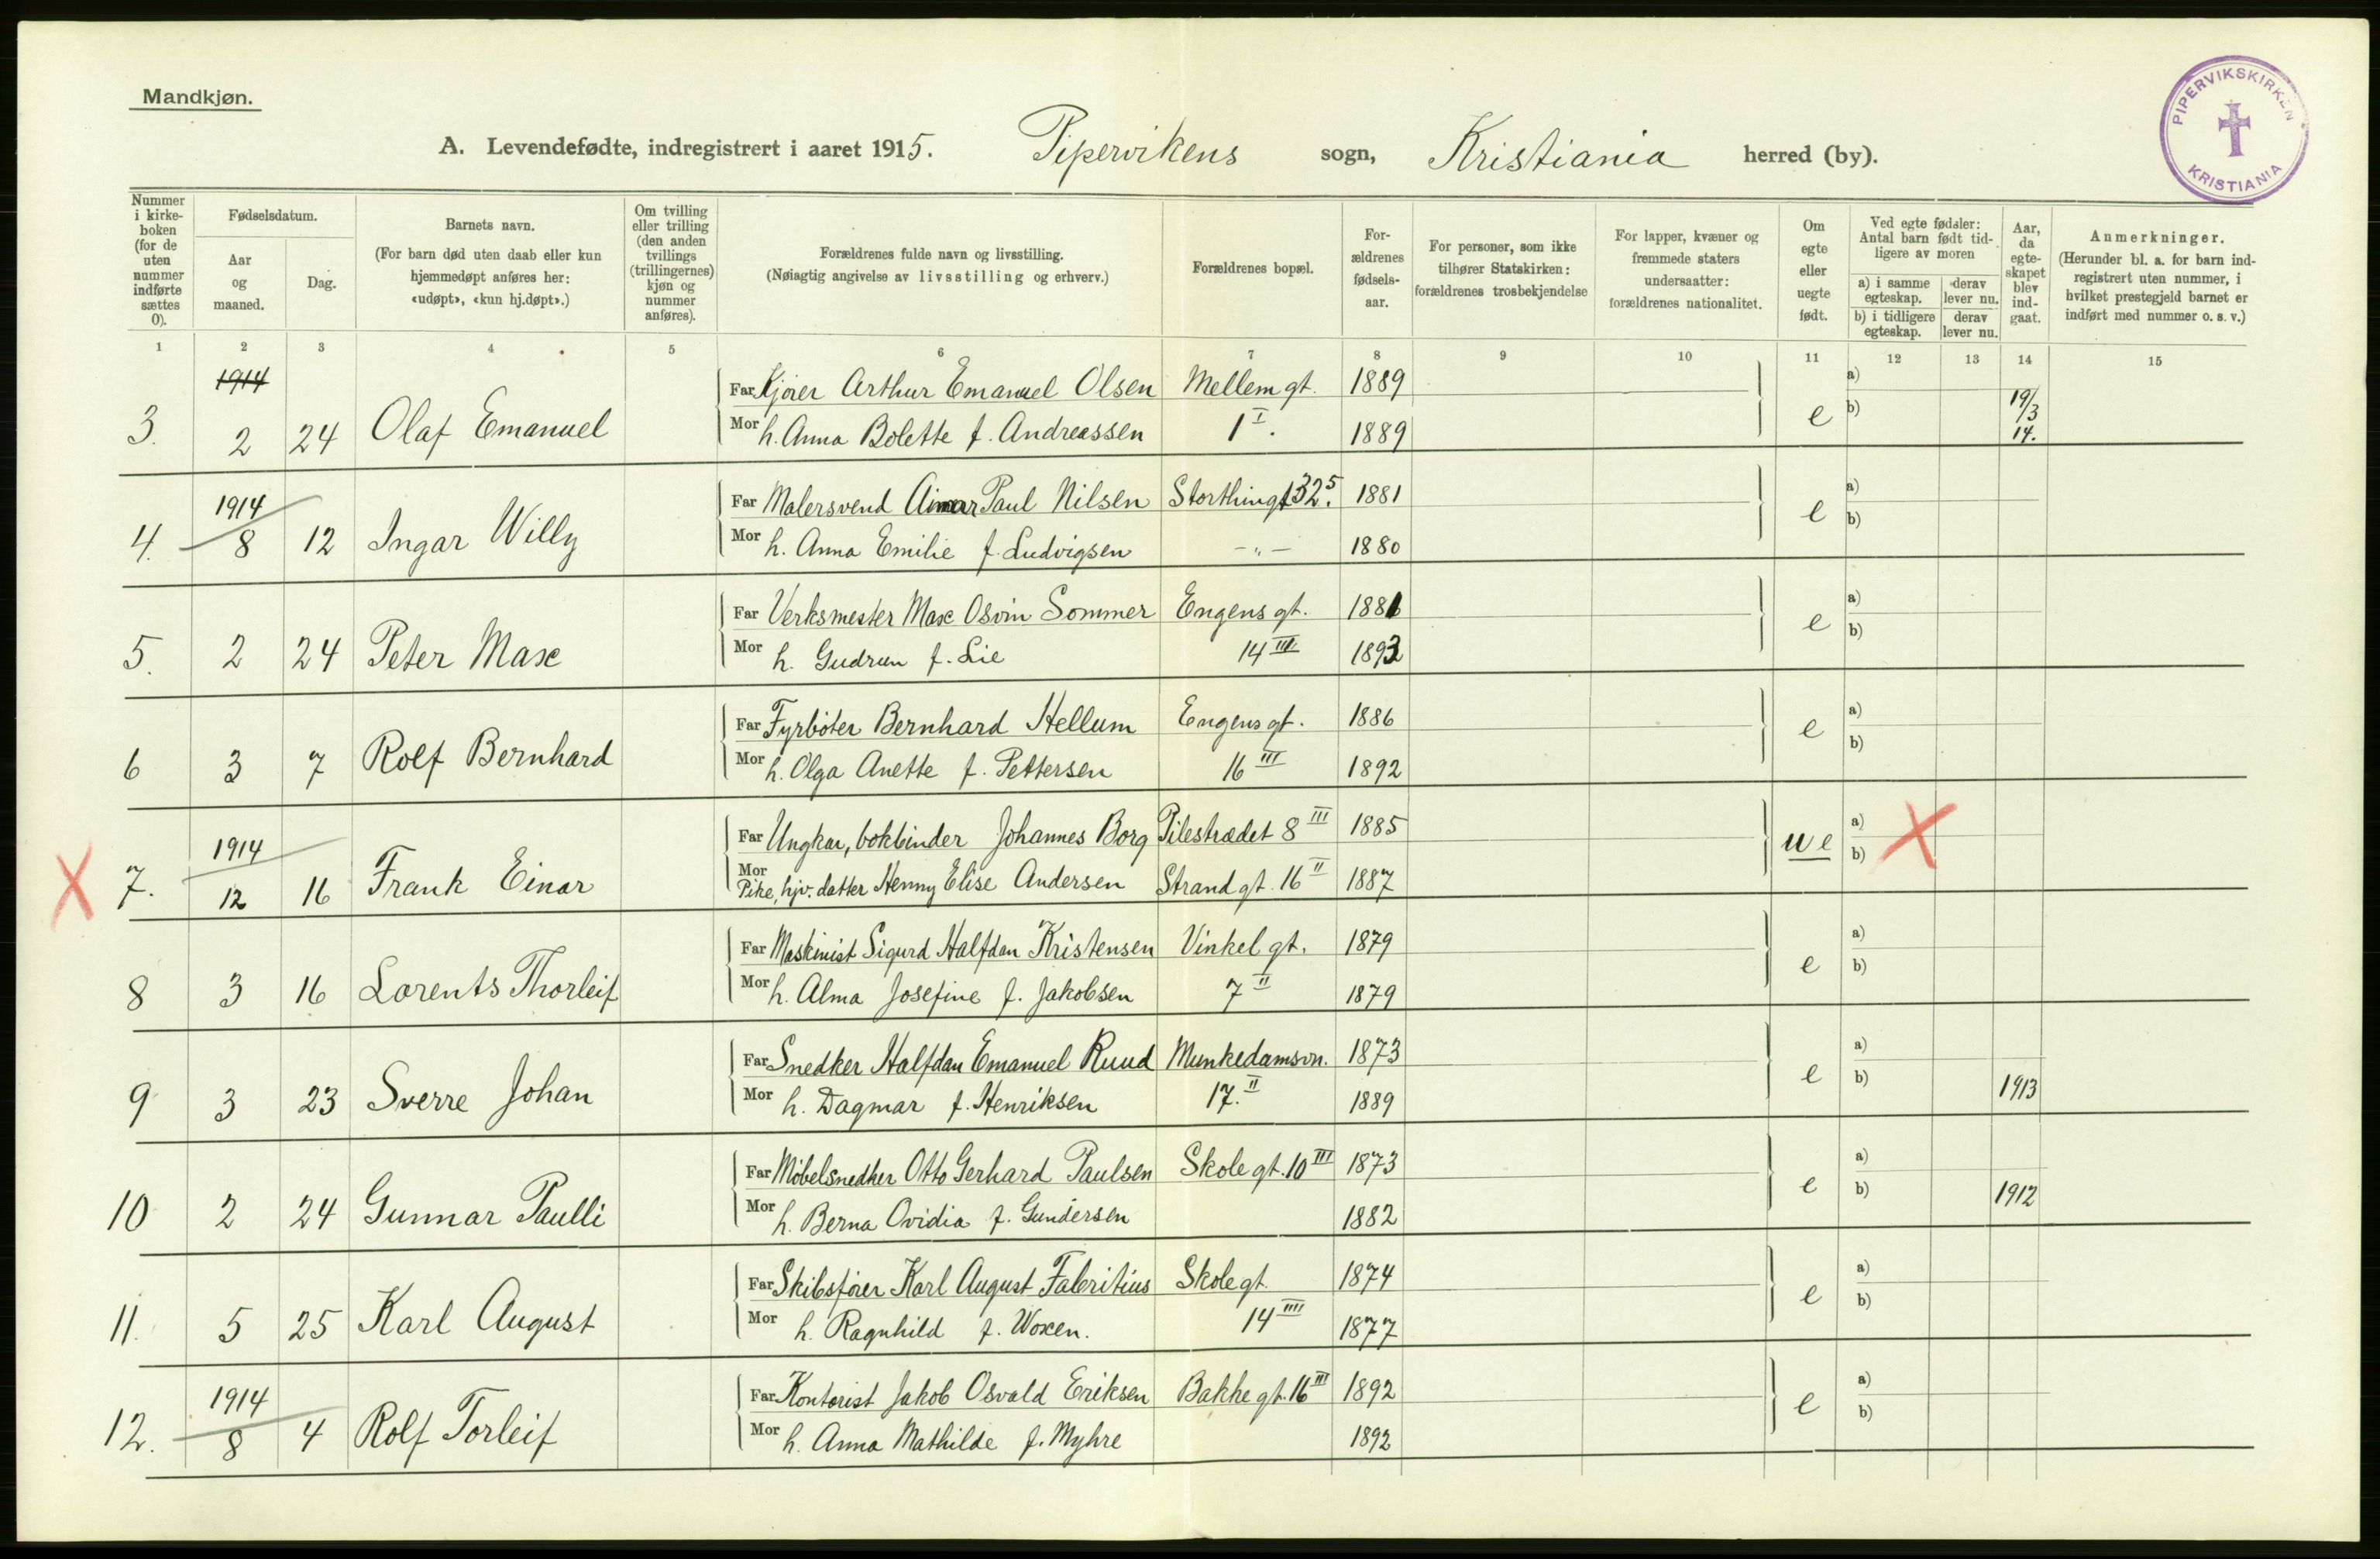 Mandkjøn.
PIPERVIKSKIRKEN KRISTIANIA
A. Levendefødte, indregistrert i aaret 1915. Pipervikens sogn, Kristiania herred (by).
Nummer i kirkeboken (for de uten nummer indførte sættes 0).
Fødselsdatum.
Aar og maaned.
Dag.
Barnets navn.
(For barn død uten daab eller kun hjemmedøpt anføres her: «udøpt», «kun hj.døpt».)
Om tvilling eller trilling (den anden tvillings (trillingernes) kjøn og nummer anføres).
Forældrenes fulde navn og livsstilling.
(Nøiagtig angivelse av livsstilling og erhverv.)
Forældrenes bopæl.
Forældrenes fødselsaar.
For personer, som ikke tilhører Statskirken: forældrenes trosbekjendelse
For lapper, kvæner og fremmede staters undersaatter: forældrenes nationalitet.
Om egte eller uegte født.
Ved egte fødsler: Antal barn født tidligere av moren
a) i samme egteskap. derav lever nu.
b) i tidligere egteskap. derav lever nu.
Aar, da egteskapet blev indgaat.
Anmerkninger.
(Herunder bl. a. for barn indregistrert uten nummer, i hvilket prestegjeld barnet er indført med nummer o. s. v.)
1 2 3 4 5 6 7 8 9 10 11 12 13 14 15
1914 Far Kjører Arthur Emanuel Olsen Mellem gt. 1889 a)
3. 2 24 Olaf Emanuel Mor h. Anna Bolette f. Andreassen 1 I. 1889 e b) 19/3 14.
1914 Far Malersvend Paul Nilsen Storthingt 32 5. 1881 a)
4. 8 12 Ingar Willy Mor h. Anna Emilie f. Ludvigsen -„- 1880 e b)
Far Verksmester Max Osvin Sommer Engens gt. 1881 a)
5. 2 24 Peter Max Mor h. Gudrun f. Lie 14 III. 1893 e b)
Far Fyrbøter Bernhard Hellum Engens gt. 1886 a)
6 3 7 Rolf Bernhard Mor h. Olga Anette f. Pettersen 16 III 1892 e b)
1914 Far Ungkar, bokbinder Johannes Borg Pilestrædet 8 III 1885 a)
X 7. 12 16 Frank Einar Mor Pike, hjv. datter Henny Elise Andersen Strand gt. 16 II 1887 ue b) X
Far Maskinist Sigurd Halfdan Kristensen Vinkel gt. 1879 a)
8 3 16 Lorents Thorleif Mor h. Alma Josefine f. Jakobsen 7 II 1879 e b)
Far Snedker Halfdan Emanuel Ruud Munkedamsvn. 1873 a)
9 3 23 Sverre Johan Mor h. Dagmar f. Henriksen 17. II 1889 e b) 1913
Far Møbelsnedker Otto Gerhard Paulsen Skole gt. 10 III 1873 a)
10 2 24 Gunnar Paulli Mor h. Berna Ovidia f. Gundersen 1882 e b) 1912
Far Skibsfører Karl August Fabritius Skole gt. 1874 a)
11. 5 25 Karl August Mor h. Ragnhild f. Woxen. 14 IIII 1877 e b)
1914 Far Kontorist Jakob Osvald Eriksen Bakke gt. 16 III 1892 a)
12. 8 4 Rolf Torleif Mor h. Anna Mathilde f. Myhre 1892 e b)